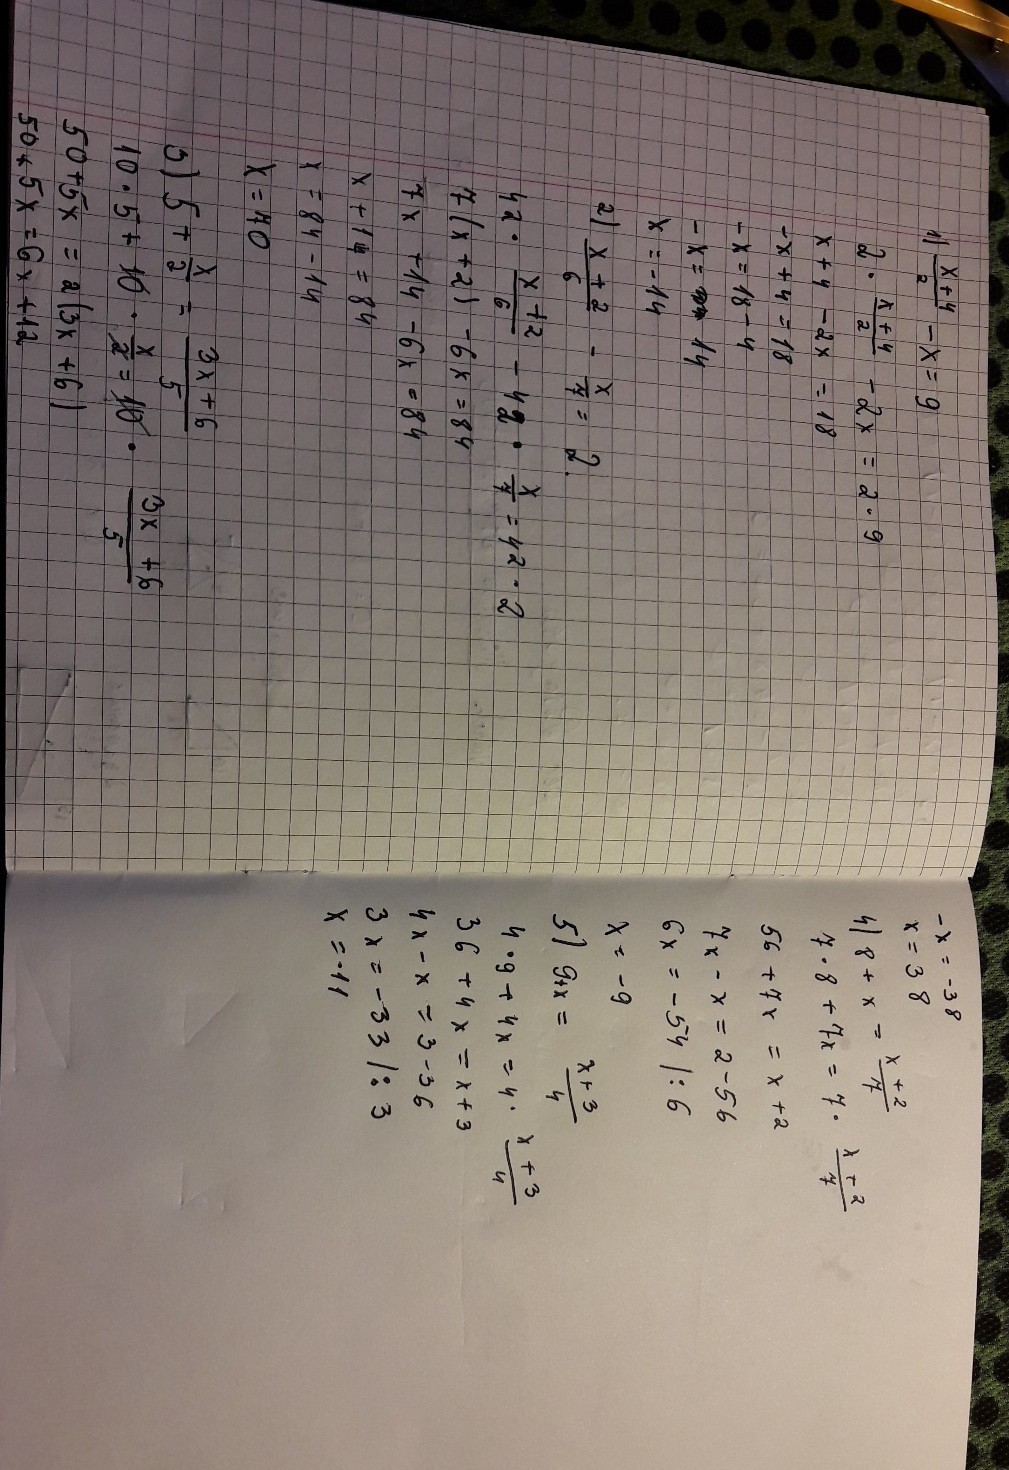 1) (x+4)/2 - x = 9
2 · (x+4)/2 - 2x = 2 · 9
x + 4 - 2x = 18
-x + 4 = 18
-x = 18 - 4
-x = 14
x = -14
2) (x+2)/6 - x/7 = 2.
42 · (x+2)/6 - 42 · x/7 = 42 · 2
7(x+2) - 6x = 84
7x + 14 - 6x = 84
x + 14 = 84
x = 84 - 14
x = 70
3) 5 + x/2 = (3x+6)/5
10 · 5 + 10 · x/2 = 10 · (3x+6)/5
50 + 5x = 2(3x+6)
50 + 5x = 6x + 12
-x = -38
x = 38
4) 8 + x = (x+2)/7
7 · 8 + 7x = 7 · (x+2)/7
56 + 7x = x + 2
7x - x = 2 - 56
6x = -54 | : 6
x = -9
5) 9+x = (x+3)/4
4 · 9 + 4x = 4 · (x+3)/4
36 + 4x = x + 3
4x - x = 3 - 36
3x = -33 | : 3
x = -11